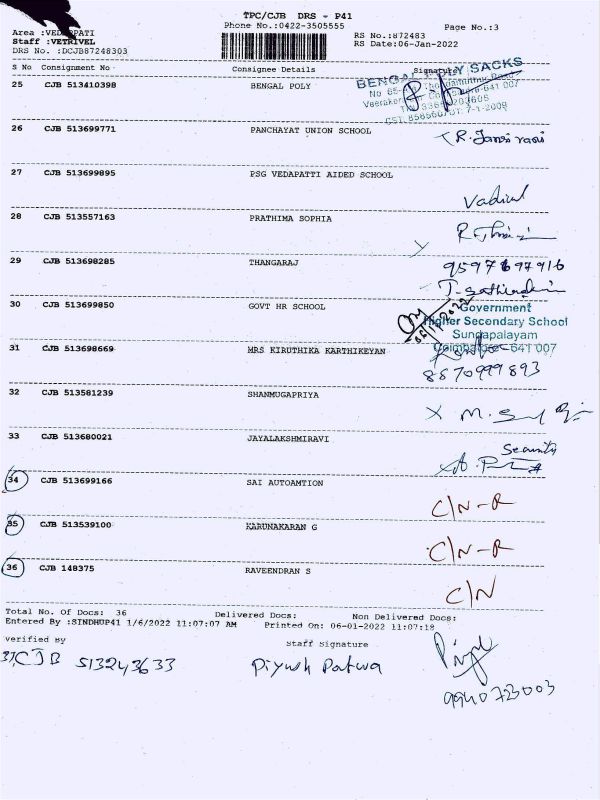 TPC/CJB DRS - P41
Phone No.:0422-3505555
Page No.:3
Area :VEDAPPATI
Staff :VETRIVEL
DRS No. :DCJB87248303
RS No.:872483
RS Date:06-Jan-2022
S No Consignment No Consignee Details Signature
BENGAL POLY SACKS
25 CJB 513410398 BENGAL POLY
26 CJB 513699771 PANCHAYAT UNION SCHOOL
27 CJB 513699895 PSG VEDAPATTI AIDED SCHOOL
28 CJB 513557163 PRATHIMA SOPHIA
29 CJB 513698285 THANGARAJ
9597697916
30 CJB 513699850 GOVT HR SCHOOL
Government
Higher Secondary School
Sundapalayam
Coimbatore-641 007
31 CJB 513698669 MRS KIRUTHIKA KARTHIKEYAN
8870999893
32 CJB 513581239 SHANMUGAPRIYA
33 CJB 513680021 JAYALAKSHMIRAVI
Security
34 CJB 513699166 SAI AUTOAMTION
C/N-R
35 CJB 513539100 KARUNAKARAN G
C/N-R
36 CJB 148375 RAVEENDRAN S
C/N
Total No. Of Docs: 36 Delivered Docs: Non Delivered Docs:
Entered By :SINDHUP41 1/6/2022 11:07:07 AM Printed On: 06-01-2022 11:07:18
verified By Staff Signature
37 CJB 513243633 Piyush Patwa
9940723003